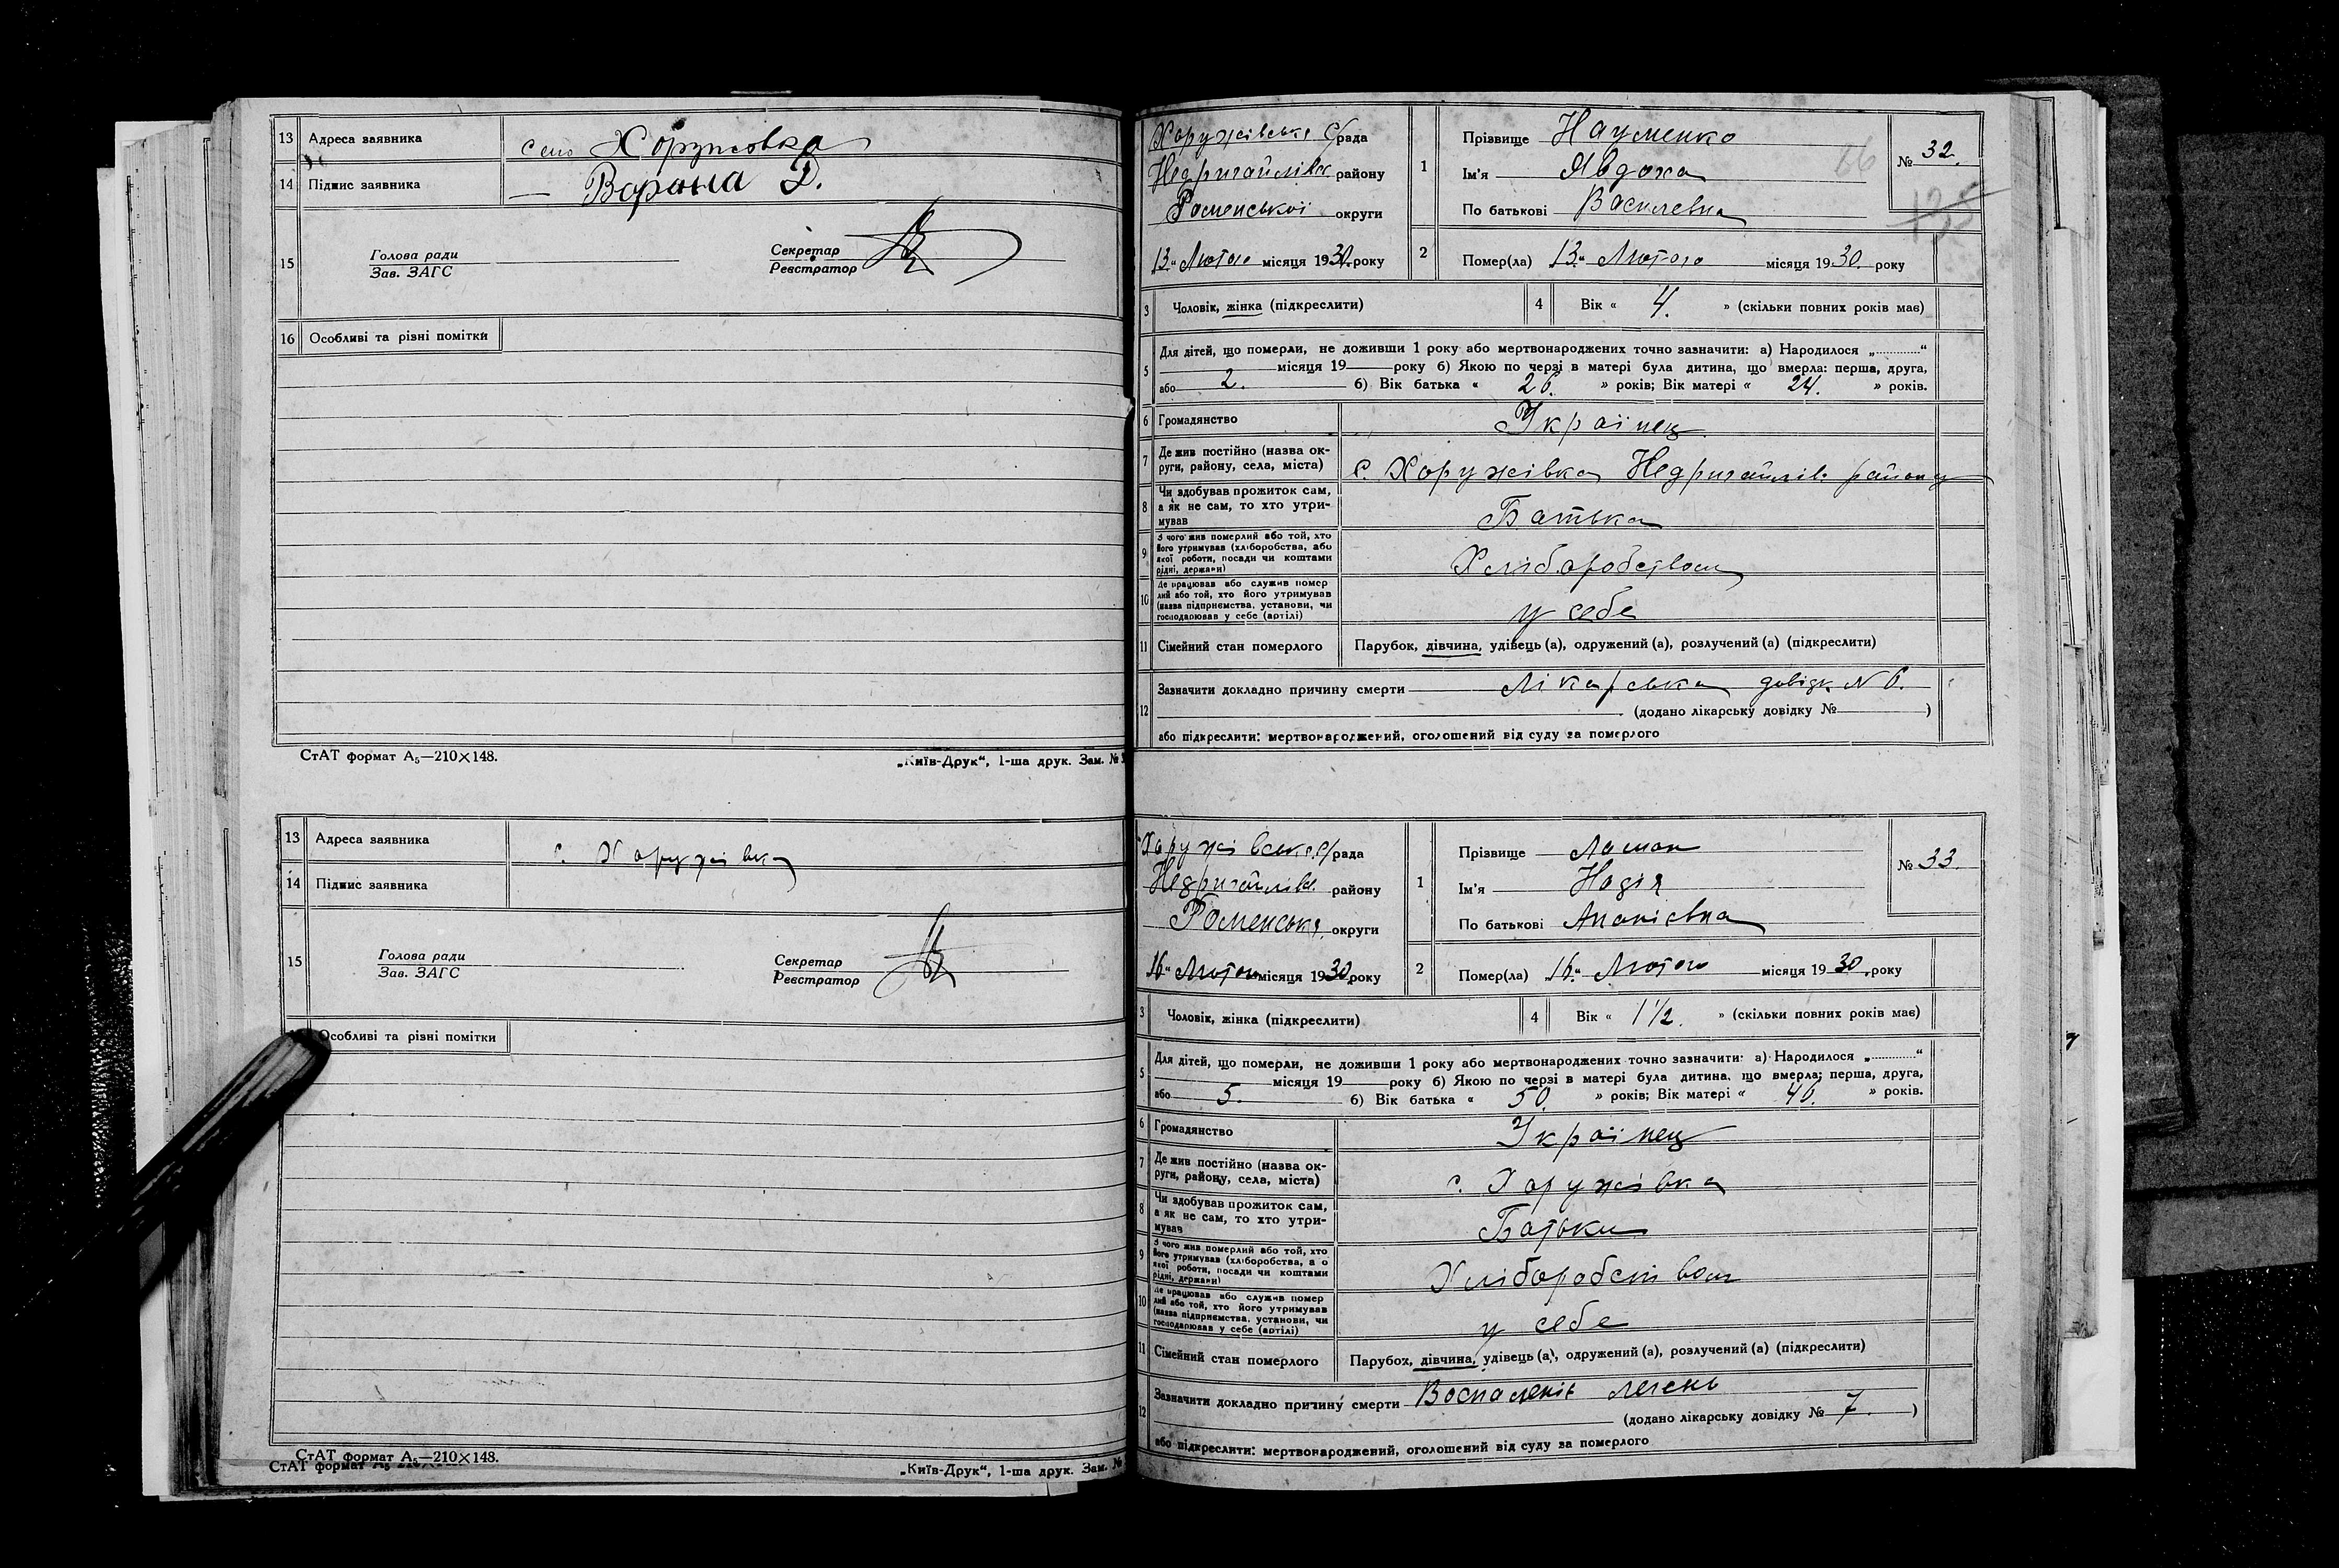 13 Адреса заявника село Хоружовка
14 Підпис заявника — Ворона Д.
15 Голова ради
Зав. ЗАГС
Секретар
Реєстратор
16 Особливі та різні помітки
СтАТ формат А₅—210×148.
„Київ-Друк“, 1-ша друк. Зам. №
13 Адреса заявника с. Хоружівка
14 Підпис заявника
15 Голова ради
Зав. ЗАГС
Секретар
Реєстратор
Особливі та різні помітки
СтАТ формат А₅—210×148.
СтАТ формат А₅
„Київ-Друк“, 1-ша друк. Зам. №
Хоружівська С/рада
Недригайлівськ району
Роменської округи
„13“ Лютого місяця 1930 року
1 Прізвище Науменко
Ім'я Явдоха
По батькові Василевна
№ 32.
66
2 Помер(ла) „13“ Лютого місяця 1930. року
3 Чоловік, жінка (підкреслити)
4 Вік « 4. » (скільки повних років має)
5 Для дітей, що померли, не доживши 1 року або мертвонароджених точно зазначити: а) Народилося „............“
місяця 19 року б) Якою по черзі в матері була дитина, що вмерла: перша, друга,
або 2. б) Вік батька « 26. » років; Вік матері « 24. » років.
6 Громадянство Українец
7 Де жив постійно (назва ок-
руги, району, села, міста) с. Хоружівка Недригайлів. району
8 Чи здобував прожиток сам,
а як не сам, то хто утри-
мував Батька
9 З чого жив померлий або той, хто
його утримував (хліборобства, або
якої роботи, посади чи коштами
рідні, держави) Хліборобством
10 Де працював або служив помер
лий або той, хто його утримував
(назва підприємства, установи, чи
господарював у себе (артілі) у себе
11 Сімейний стан померлого Парубок, дівчина, удівець (а), одружений (а), розлучений (а) (підкреслити)
12 Зазначити докладно причину смерти Лікарська довідк N 6.
(додано лікарську довідку № )
або підкреслити: мертвонароджений, оголошений від суду за померлого
Хоружівська с/рада
Недригайлівс. району
Роменська округи
„16“ Лютого місяця 1930 року
1 Прізвище Лошак
Ім'я Надія
По батькові Ананієвна
№ 33.
2 Помер(ла) „16“ Лютого місяця 1930. року
3 Чоловік, жінка (підкреслити)
4 Вік « 1 1/2. » (скільки повних років має)
5 Для дітей, що померли, не доживши 1 року або мертвонароджених точно зазначити: а) Народилося „............“
місяця 19 року б) Якою по черзі в матері була дитина, що вмерла: перша, друга,
або 5. б) Вік батька « 50. » років; Вік матері « 46. » років.
6 Громадянство Українец
7 Де жив постійно (назва ок-
руги, району, села, міста) с. Хоружівка
8 Чи здобував прожиток сам,
а як не сам, то хто утри-
мував Батьки
9 З чого жив померлий або той, хто
його утримував (хліборобства, а о
якої роботи, посади чи коштами
рідні, держави) Хліборобством
10 Де працював або служив помер
лий або той, хто його утримував
(назва підприємства, установи, чи
господарював у себе (артілі) у себе
11 Сімейний стан померлого Парубох, дівчина, удівець (а), одружений (а), розлучений (а) (підкреслити)
12 Зазначити докладно причину смерти Воспаленіє легень
(додано лікарську довідку № 7. )
або підкреслити: мертвонароджений, оголошений від суду за померлого